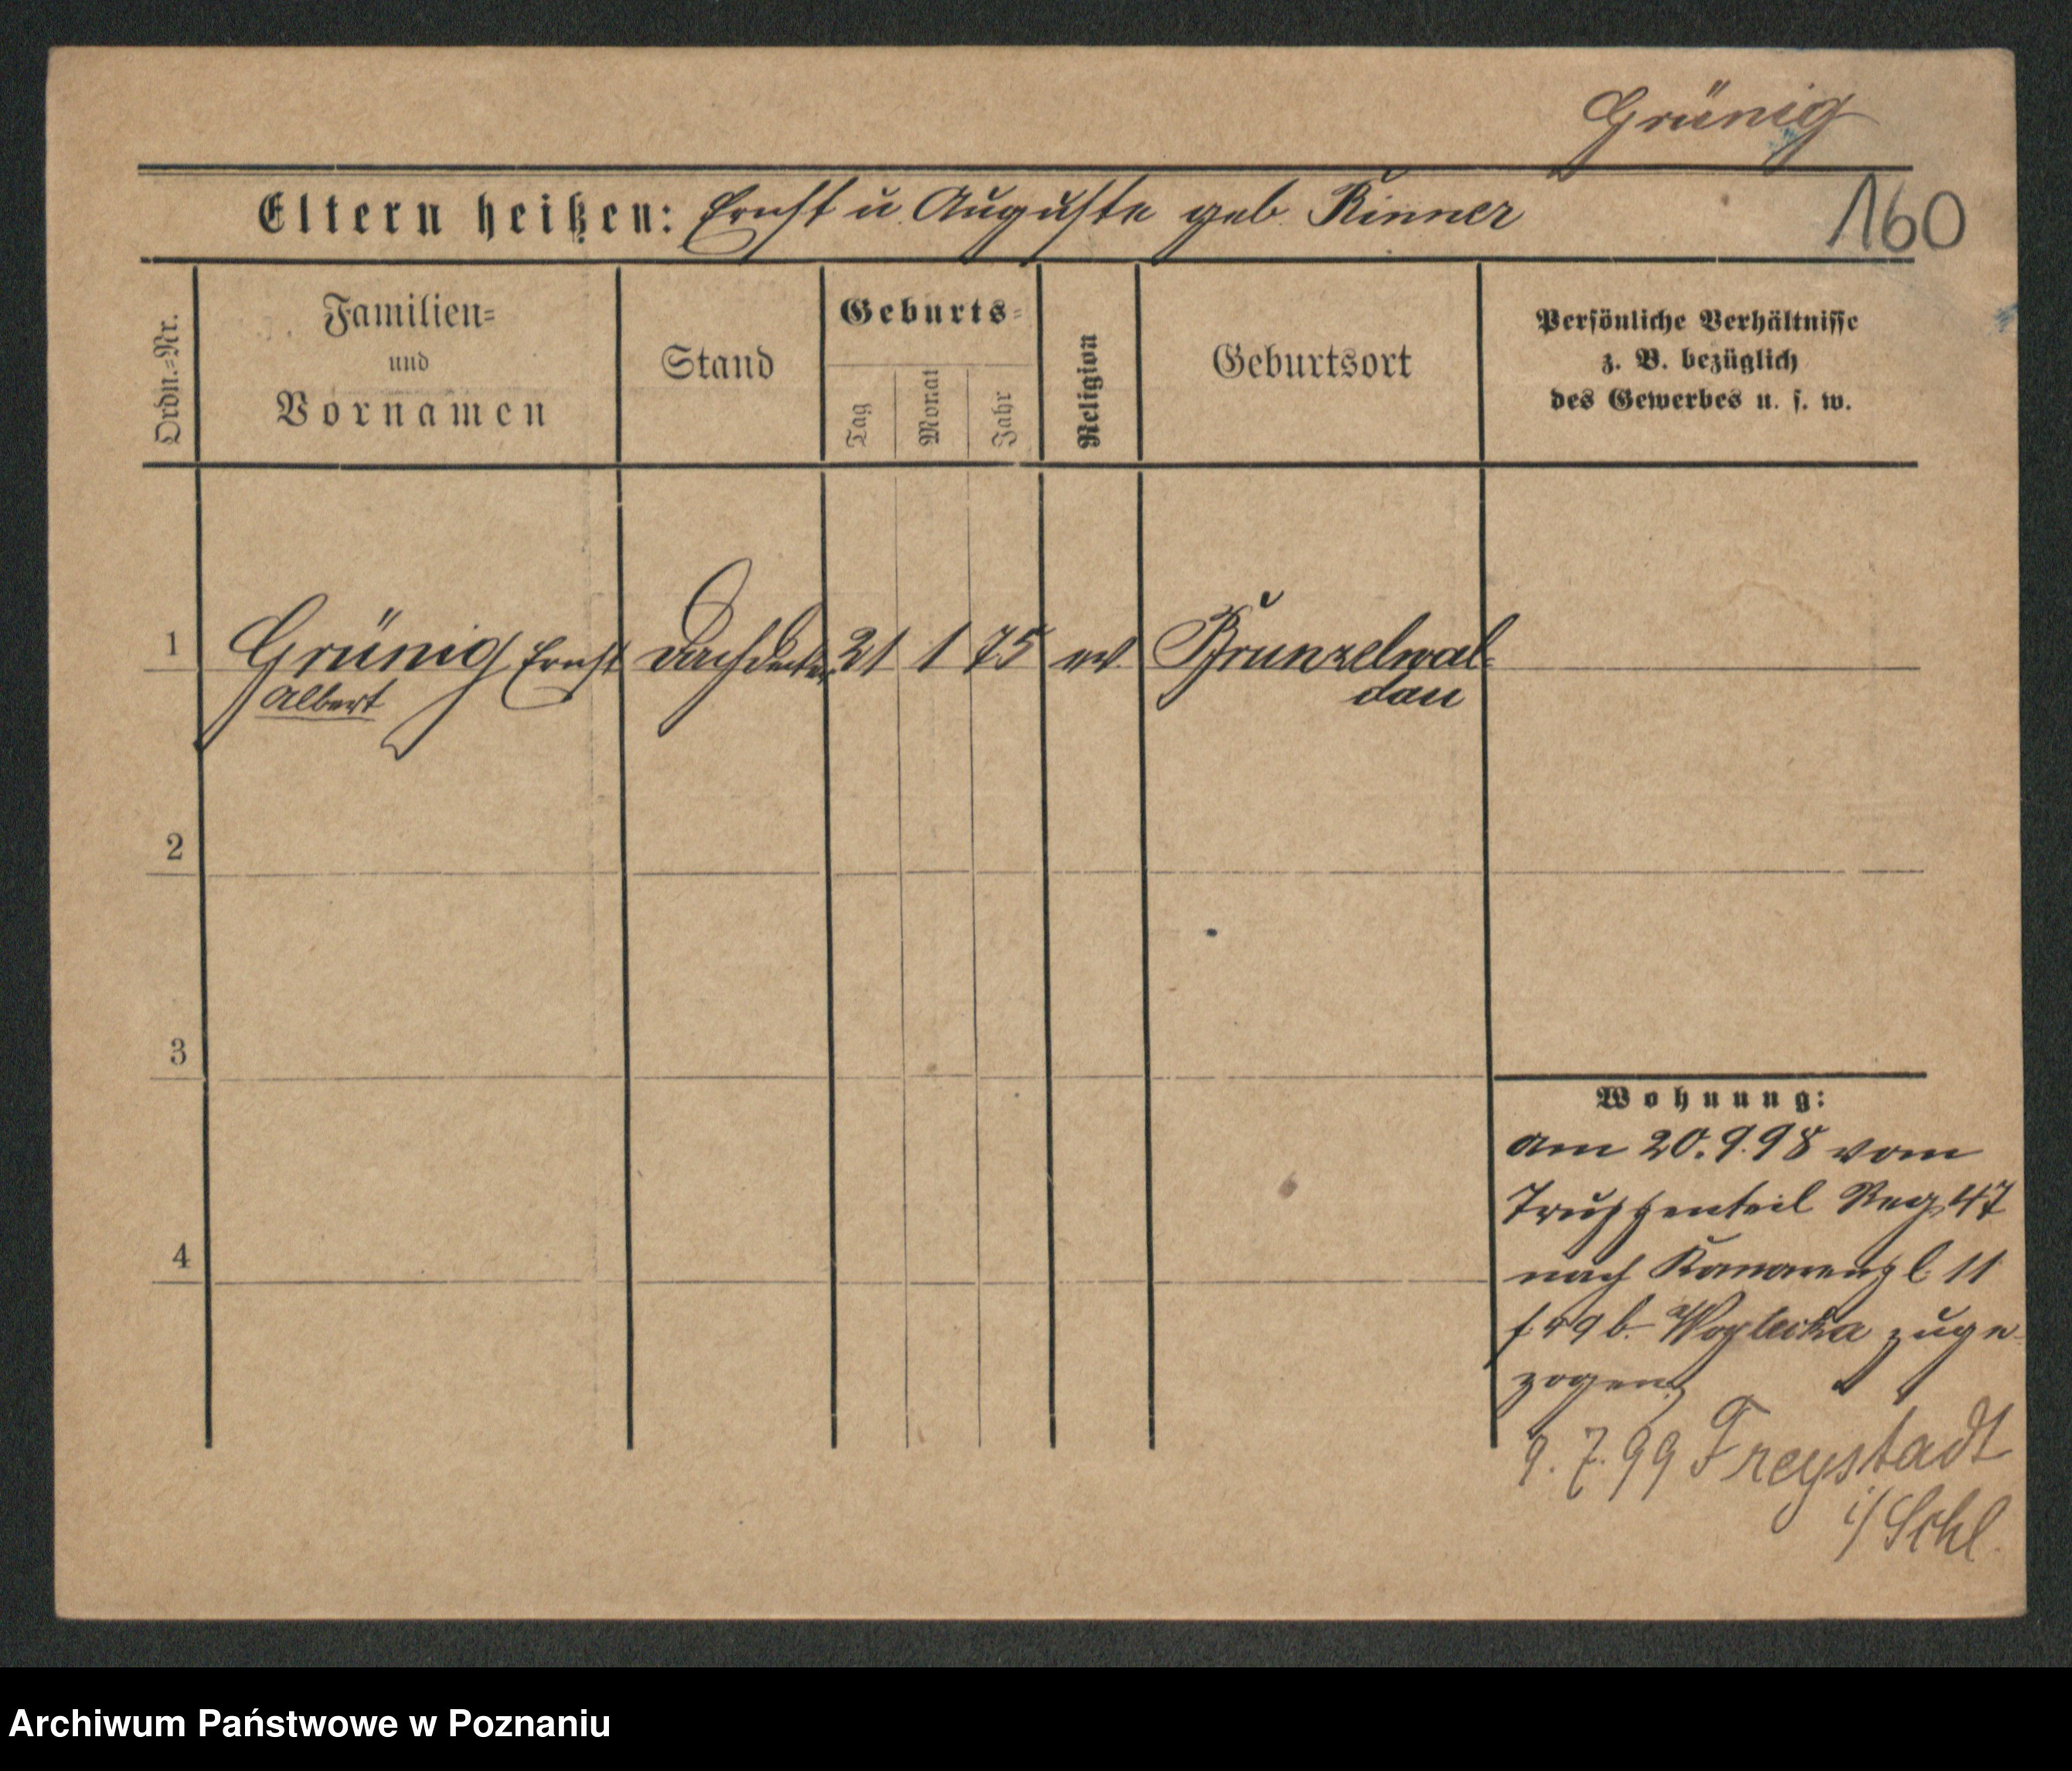 Grünig
Eltern heißen: Ernst u. Auguste geb. Rinner
160
Ordn.=Nr.
Familien=
und
Vornamen
Stand
Geburts=
Tag
Monat
Jahr
Religion
Geburtsort
Persönliche Verhältnisse
z. B. bezüglich
des Gewerbes u. s. w.
1 Grünig Ernst Dachdecker 21 1 75 ev. Brunzelwal-
Albert
dau
2
3
4
Wohnung:
am 20.9.98 vom
Truppenteil Reg. 47
nach 11
b. zuge
zogen
9.7.99 Freystadt
i/Schl.
Archiwum Państwowe w Poznaniu